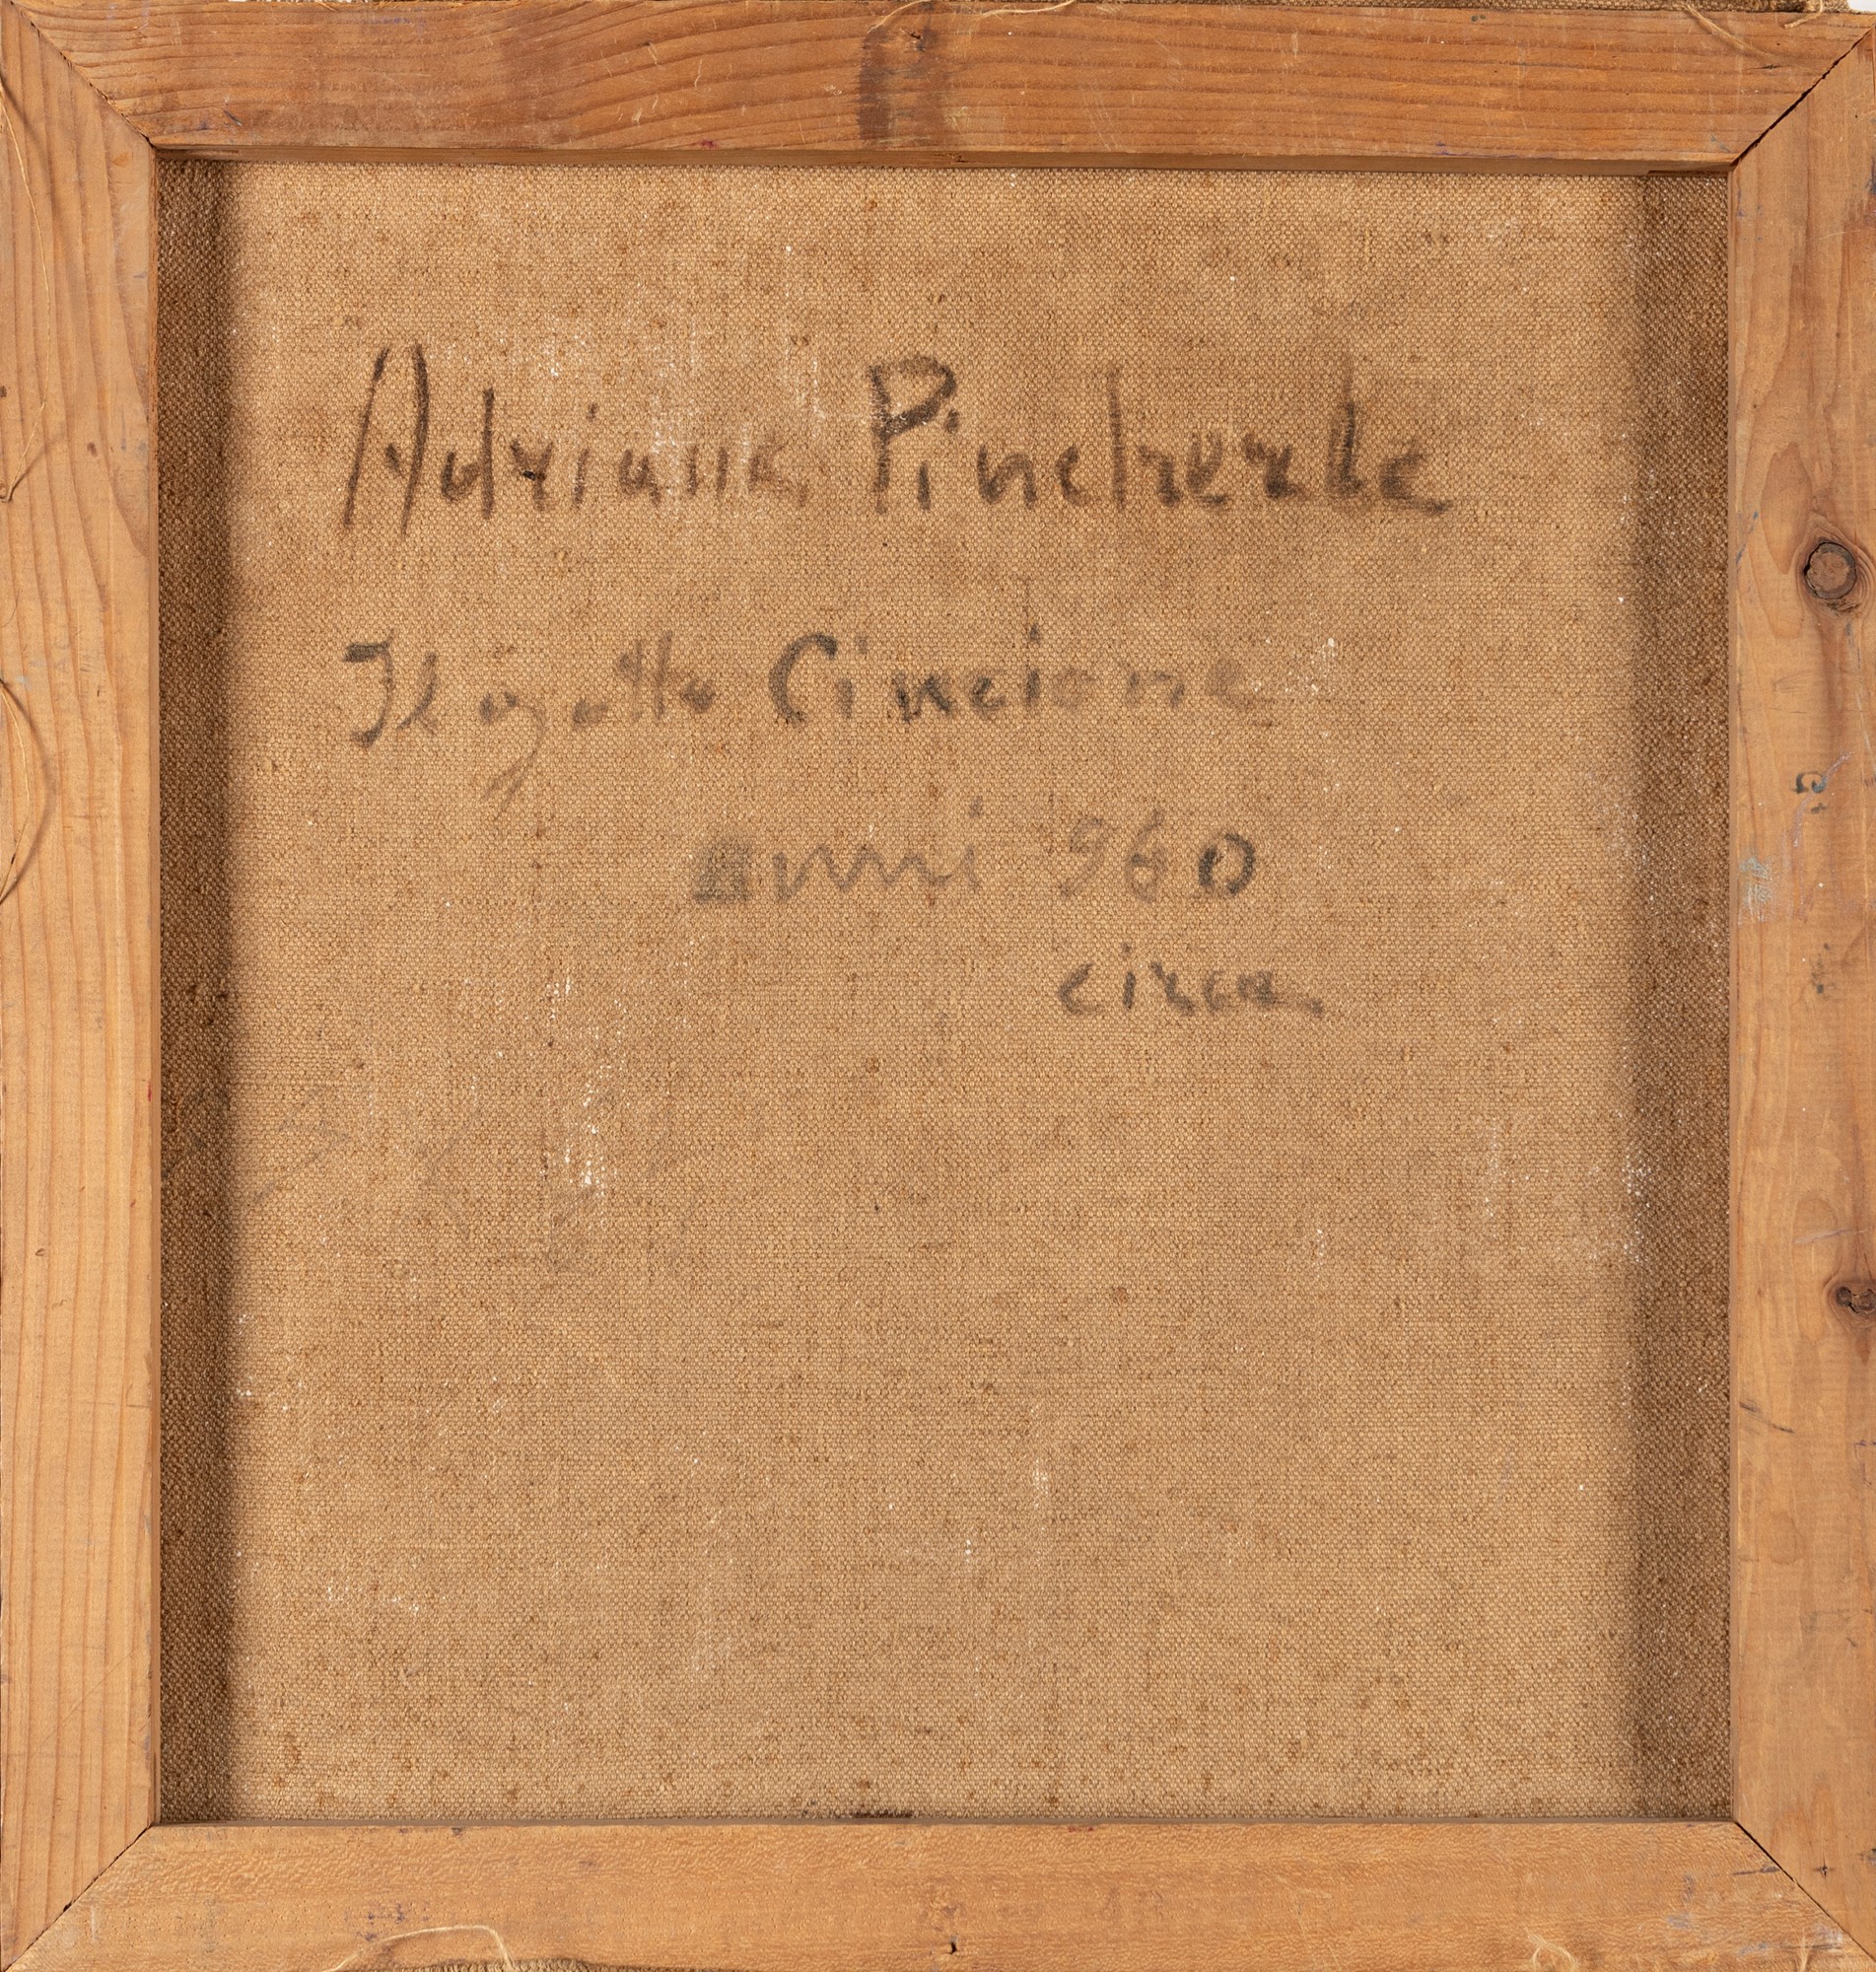 Adriana Pincherle
Il gatto Cincione
anni 960
circa